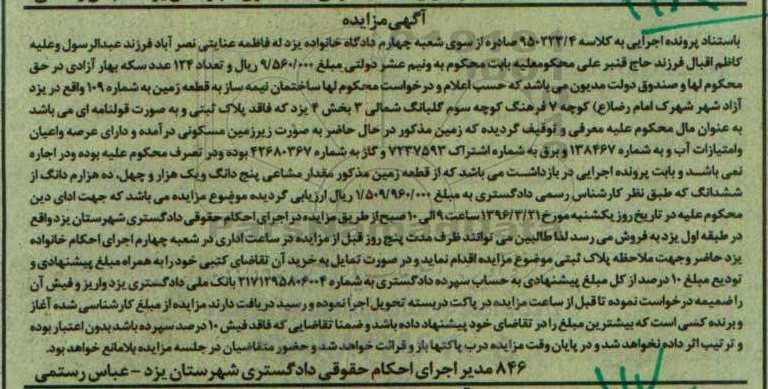 آگهی مزایده
باستناد پرونده اجرایی به کلاسه ۹۵۰۲۲۳/۴ صادره از سوی شعبه چهارم دادگاه خانواده یزد له فاطمه عنایتی نصر آباد فرزند عبدالرسول وعلیه
کاظم اقبال فرزند حاج قنبر علی محکوم‌علیه بابت محکوم به ونیم عشر دولتی مبلغ ۹/۵۶۰/۰۰۰ ریال و تعداد ۱۲۴ عدد سکه بهار آزادی در حق
محکوم لها و صندوق دولت مدیون می باشد که حسب اعلام و درخواست محکوم لها ساختمان نیمه ساز به قطعه زمین به شماره ۱۰۹ واقع در یزد
آزاد شهر شهرک امام رضا(ع) کوچه ۷ فرهنگ کوچه سوم گلبانگ شمالی ۳ بخش ۴ یزد که فاقد پلاک ثبتی و به صورت قولنامه ای می باشد
به عنوان مال محکوم علیه معرفی و توقیف گردیده که زمین مذکور در حال حاضر به صورت زیرزمین مسکونی درآمده و دارای عرصه واعیان
وامتیازات آب و به شماره ۱۳۸۴۶۷ و برق به شماره اشتراک ۷۲۳۷۵۹۳ و گاز به شماره ۴۲۶۸۰۳۶۷ بوده ودر تصرف محکوم علیه بوده ودر اجاره
نمی باشد و بابت پرونده اجرایی در بازداشت می باشد که از قطعه زمین مذکور مقدار مشاعی پنج دانگ ویک هزار و چهل، ده هزارم دانگ از
ششدانگ که طبق نظر کارشناس رسمی دادگستری به مبلغ ۱/۵۰۹/۹۶۰/۰۰۰ ریال ارزیابی گردیده موضوع مزایده می باشد که جهت ادای دین
محکوم علیه در تاریخ روز یکشنبه مورخ ۱۳۹۶/۳/۲۱ ساعت ۹ الی ۱۰ صبح از طریق مزایده در اجرای احکام حقوقی دادگستری شهرستان یزد واقع
در طبقه اول یزد به فروش می رسد لذا طالبین می توانند ظرف مدت پنج روز قبل از مزایده در ساعت اداری در شعبه چهارم اجرای احکام خانواده
یزد حاضر وجهت ملاحظه پلاک ثبتی موضوع مزایده اقدام نماید و در صورت تمایل به خرید آن تقاضای کتبی خود را به همراه مبلغ پیشنهادی و
تودیع مبلغ ۱۰ درصد از کل مبلغ پیشنهادی به حساب سپرده دادگستری به شماره ۲۱۷۱۲۹۵۸۰۶۰۰۴ بانک ملی دادگستری یزد واریز و فیش آن
را ضمیمه درخواست نموده تا قبل از ساعت مزایده در پاکت دربسته تحویل اجرا نموده و رسید دریافت دارند مزایده از مبلغ کارشناسی شده آغاز
و برنده کسی است که بیشترین مبلغ را در تقاضای خود پیشنهاد داده باشد و ضمنا تقاضایی که فاقد فیش ۱۰ درصد سپرده باشد بدون اعتبار بوده
و ترتیب اثر داده نخواهد شد و در پایان وقت مزایده درب پاکتها باز و قرائت خواهد شد و حضور متقاضیان در جلسه مزایده بلامانع خواهد بود.
۸۴۶ مدیر اجرای احکام حقوقی دادگستری شهرستان یزد - عباس رستمی